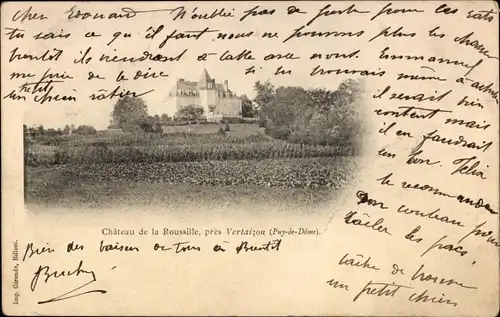 Cher Edouard N'oublie pas de partir pour les rats
tu sais ce qu'il faut nous ne pouvons plus les chasser
bientôt ils viendront à table avec nous. Emmanuel
me prie de te dire si tu trouvais même à acheter
petit chien ratier il serait bien
content mais
il en faudrait
un bon. Félix
te recommande
bon
tâche de trouver
un petit chien
Château de la Roussille, près Vertaizon (Puy-de-Dôme).
Bien des baisers de tous à Bientôt
Imp. Gironde, Editeur.